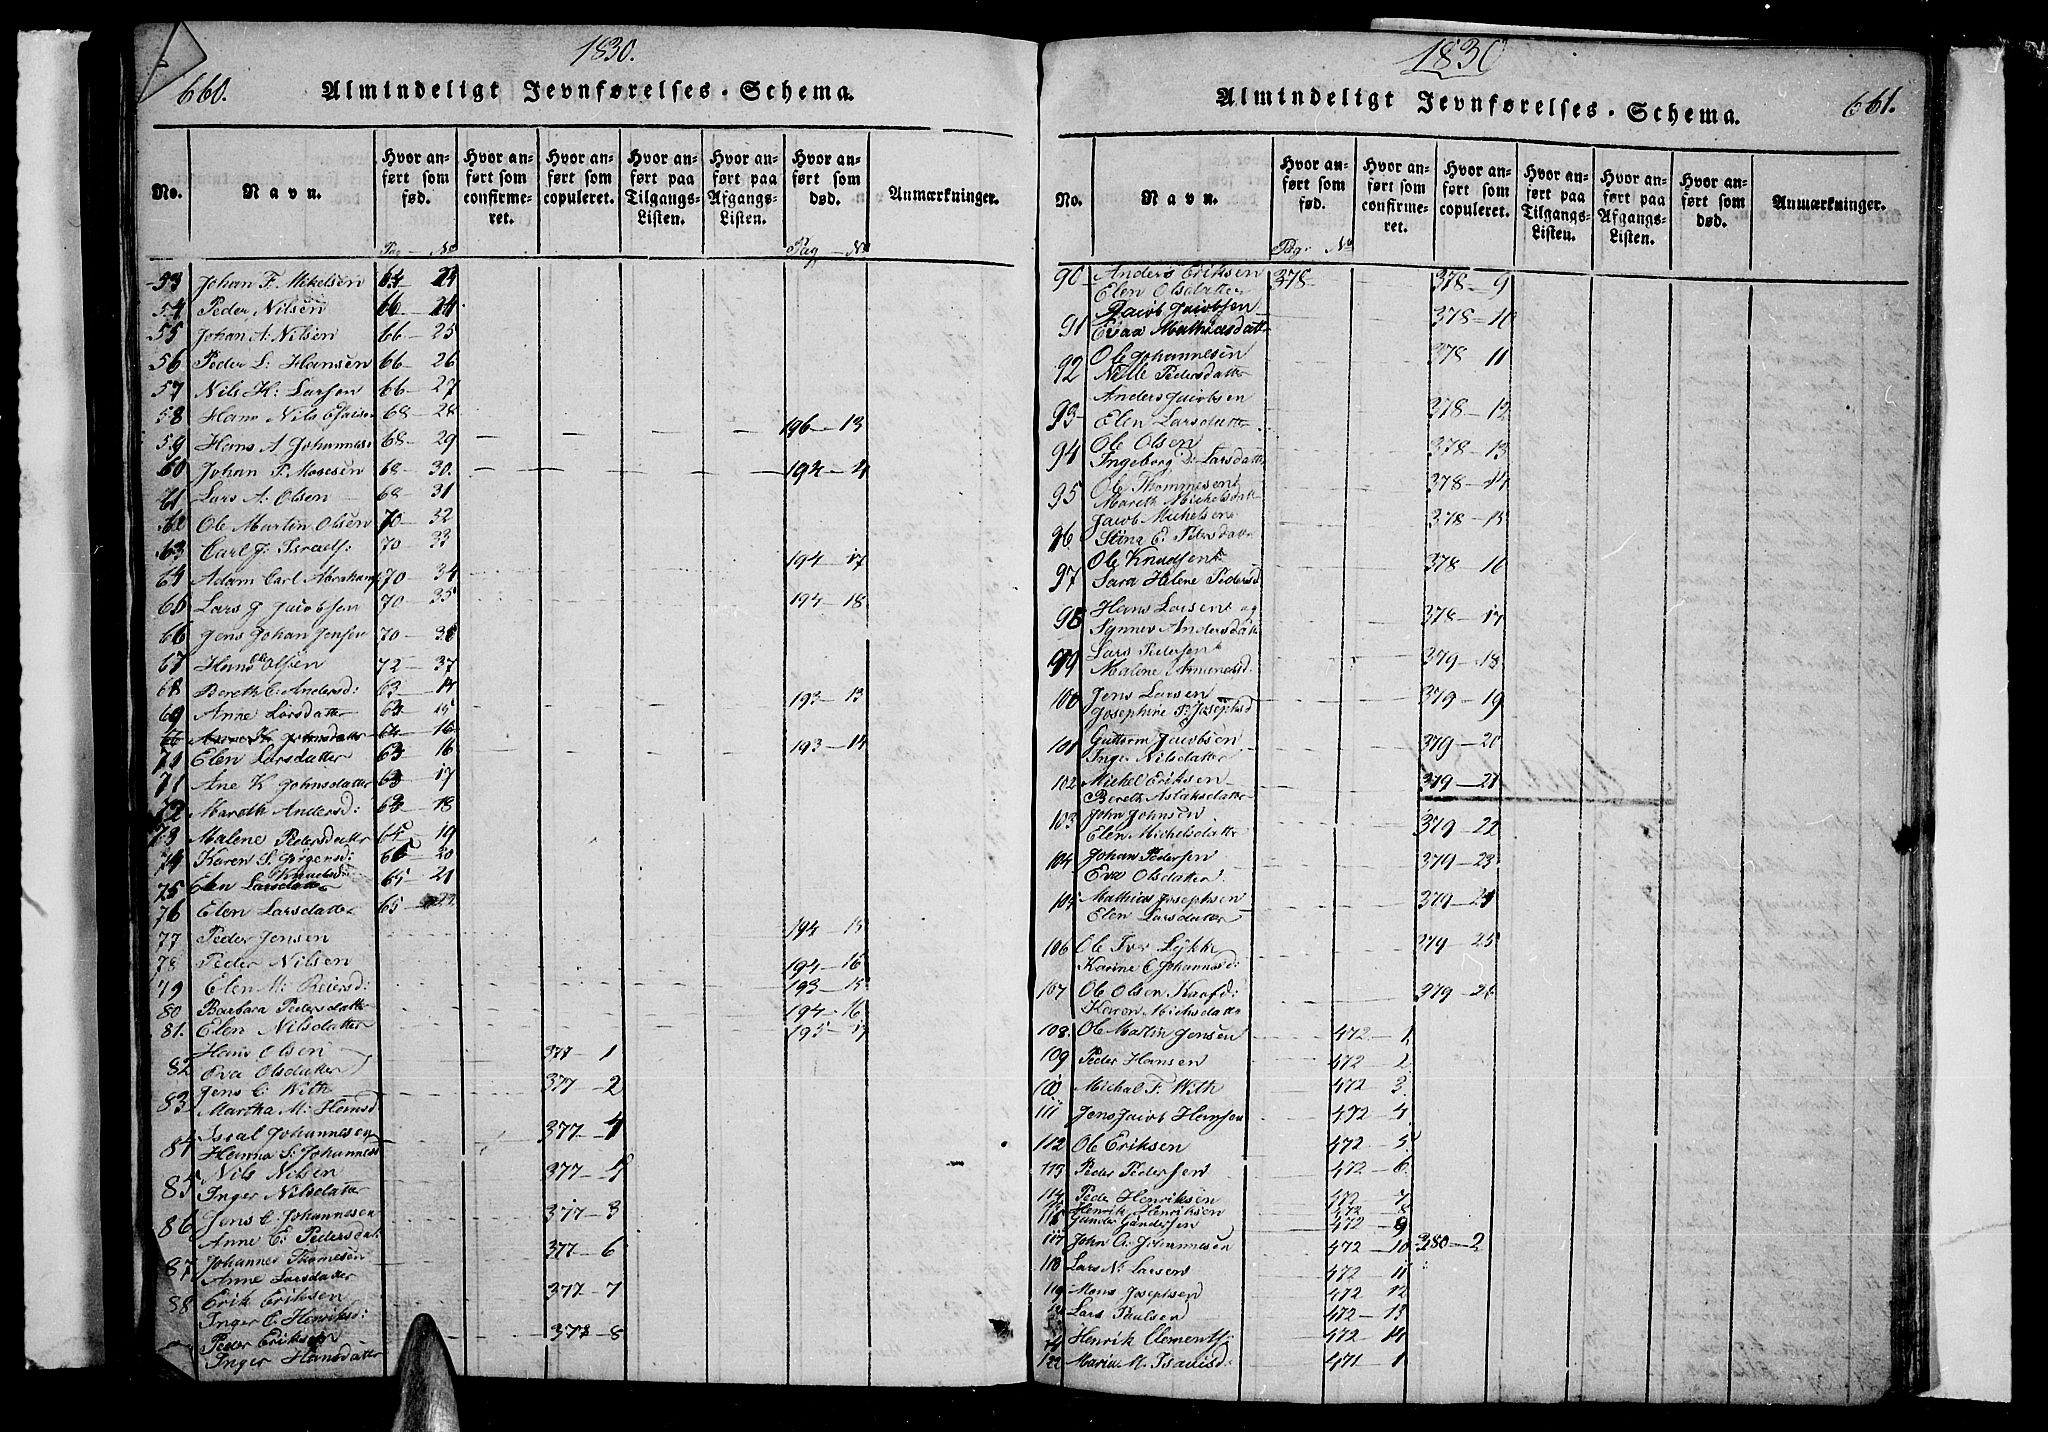 1830.
660. Almindeligt Jevnførelses-Schema.
No. Navn. Hvor anført som fød. Hvor anført som confirmeret. Hvor anført som copuleret. Hvor anført paa Tilgangs-Listen. Hvor anført paa Afgangs-Listen. Hvor anført som død. Anmærkninger.
Pag — No Pag — No
53 Johan F. Mikelsen 64 — 24
54 Peder Nilsen 66 — 24
55 Johan A. Nilsen 66 — 25
56 Peder L: Hansen 66 — 26
57 Nils H: Larsen 66 — 27
58 Hans Nils 68 — 28 196 — 13
59 Hans A Johannes 68 — 29
60 Johan P. Mosesen 68 — 30. 194 — 4
61 Lars A. Olsen 68 — 31
62 Ole Martin Olsen 70 — 32
63 Carl J: Israels: 70 — 33 194 — 17
64 Adam Carl Abraham 70 — 34
65 Lars J Jacobsen 70 — 35 194 — 18
66 Jens Johan Jensen 70 — 36
67 Hans Ole Olsen 72 — 37
68 Bereth C. Andersd: 63 — 14 193 — 13
69 Anne Larsdatter 63 — 15
Anne K Johnsdatter 64 — 16
Elen Larsdatter 63 — 16 193 — 14
71 Ane K Johnsdatter 63 — 17
72 Mareth Andersd: 63 — 18
73 Malene Pedersdatter 65 — 19
74 Karen S. Jörgensd: 65 — 20
75 Elen Larsdatter Knudsd: 65 — 21
76 Elen Larsdatter 65 — 22
77 Peder Jensen 194 — 15
78 Peder Nilsen 194 — 16
79 Elen M: Reiersd: 193 — 15
80 Barbara Pedersdatter 194 — 16
81. Elen Nilsdatter 195 — 17
82 Hans Olsen 377 — 1
Eva Olsdatter
83 Jens C: With 377 — 2
Martha M: Hansd
84 Isral Johannesen 377 — 4
Hanna S: Johannesd
85 Nils Nilsen 377 —
Inger Nilsdatter
86 Jens C. Johannesen 377 — 3
Anne E: Pedersdat.
87 Johannes Thomesen 377 — 6
Anne Larsdatter
88 Erik Eriksen 377 — 7
Inger C. Henriksd:
Peder Eriksen 377 — 8
Inger Hansdatter
1830
Almindeligt Jevnførelses-Schema. 661.
No. Navn. Hvor anført som fød. Hvor anført som confirmeret. Hvor anført som copuleret. Hvor anført paa Tilgangs-Listen. Hvor anført paa Afgangs-Listen. Hvor anført som død. Anmærkninger.
Pag. No
90 Anders Eriksen 378 378 — 9
Elen Olsdatter
91 Jacob Jacobsen 378 — 10
Evaa Mathiasdatt
92 Ole Johannesen 378 11
Nille Pedersdatter
93 Anders Jacobsen 378 — 12
Elen Larsdatter
94 Ole Olsen 378 — 13
Ingeborg D: Larsdatter
95 Ole Thommesen 378 — 14
Mareth Michelsdatt
96 Jacob Michelsen 378 — 15
Stina E. Pedersdatter
97 Ole Knudsen 378 — 16
Sara Helene Pedersd
98 Hans Larsen og 378 — 17
Synnev Andersdatter
99 Lars Pedersen 379 — 18
Malene Amundsd.
100 Jens Larsen 379 — 19
Josephine P. Josephsd
101 Guttorm Jacobsen 379 — 20
Inger Nilsdatter
102 Mickel Eriksen 379 — 21
Bereth Aslaksdatter
103 John Johnsen 379 — 22
Elen Michelsdatter
104 Johan Pedersen 379 — 23
Eva Olsdatter.
105 Mathias Josephsen 379 — 24
Elen Larsdatter
106 Ole Iver Lykke 379 — 25
Karine C Johannesd:
107 Ole Olsen 379 — 26
Karen Michsdatte
108. Ole Martin Jensen 472 — 1
109 Peder Hansen 472 — 2
Michal F. With 472 — 3
111 Jens Jacob Hansen 472 — 4
112 Ole Eriksen 472 — 5
113 Peder Pedersen 472 — 6
114 Peder Henriksen 472 — 7
115 Henrik Henriksen 472 — 8
116 Gunder Gundersen 472 — 9
117 John O. Johannesen 472 — 10 380 — 2
118 Lars N. Larsen 472 — 11
119 Mons Josephsen 472 — 12
Lars Paulsen 472 — 13
Henrik Clements: 472 — 14
122 Maria M. 471 — 1